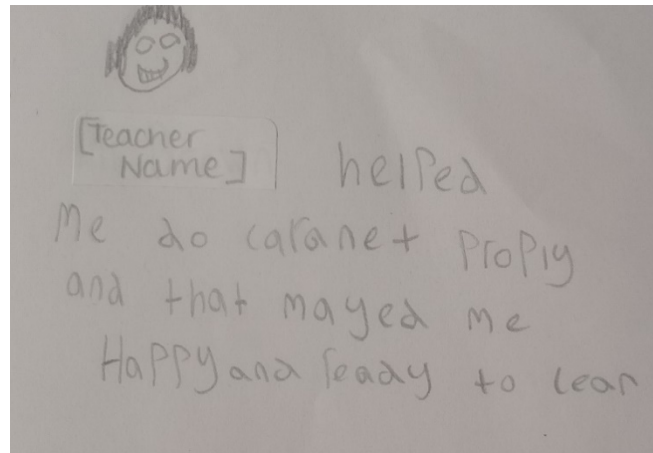 [Teacher
Name] helped
Me do caranet Proply
and that mayed me
Happy and ready to lean